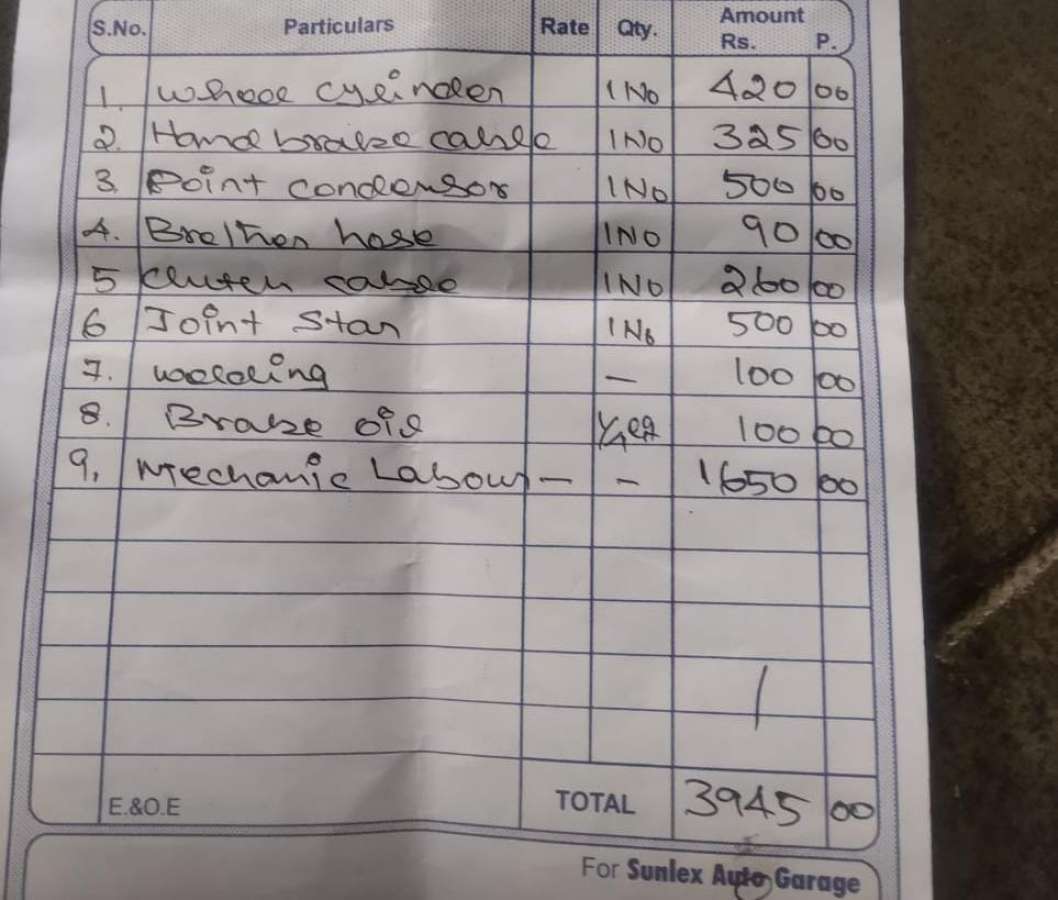 S.No. Particulars Rate Qty. Amount Rs. P.
1. Wheel cylinder 1 No 420 00
2. Hand brake cable 1 No 325 00
3. Point condensor 1 No 500 00
4. hose 1 No 90 00
5 Clutch cable 1 No 260 00
6 Joint Star 1 No 500 00
7. welding — 100 00
8. Brake oil 100 00
9. Mechanic Labour — - 1650 00
E.&O.E TOTAL 3945 00
For Sunlex Auto Garage